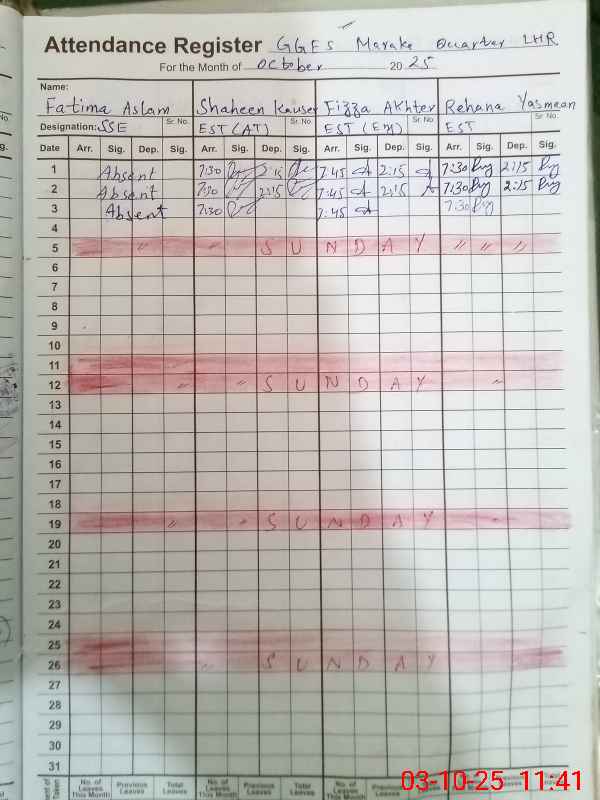 Attendance Register GGES Maraka Quarter LHR
For the Month of October 2025
Name:
Fatima Aslam Shaheen Kauser Fizza Akhter Rehana Yasmeen
Designation: SSE Sr. No. EST (AT) Sr. No. EST (EM) Sr. No. EST Sr. No.
Date Arr. Sig. Dep. Sig. Arr. Sig. Dep. Sig. Arr. Sig. Dep. Sig. Arr. Sig. Dep. Sig.
1 Absent 7:30 2:15 7:45 2:15 7:30 2:15
2 Absent 7:30 2:15 7:45 2:15 7:30 2:15
3 Absent 7:30 7:45 7:30
4
5 " " S U N D A Y " " "
6
7
8
9
10
11
12 " " S U N D A Y "
13
14
15
16
17
18
19 " " S U N D A Y
20
21
22
23
24
25
26 " S U N D A Y
27
28
29
30
31
No. of Leaves This Month Previous Leaves Total Leaves No. of Leaves This Month Previous Leaves Total Leaves No. of Leaves This Month Previous Leaves
03-10-25 11:41